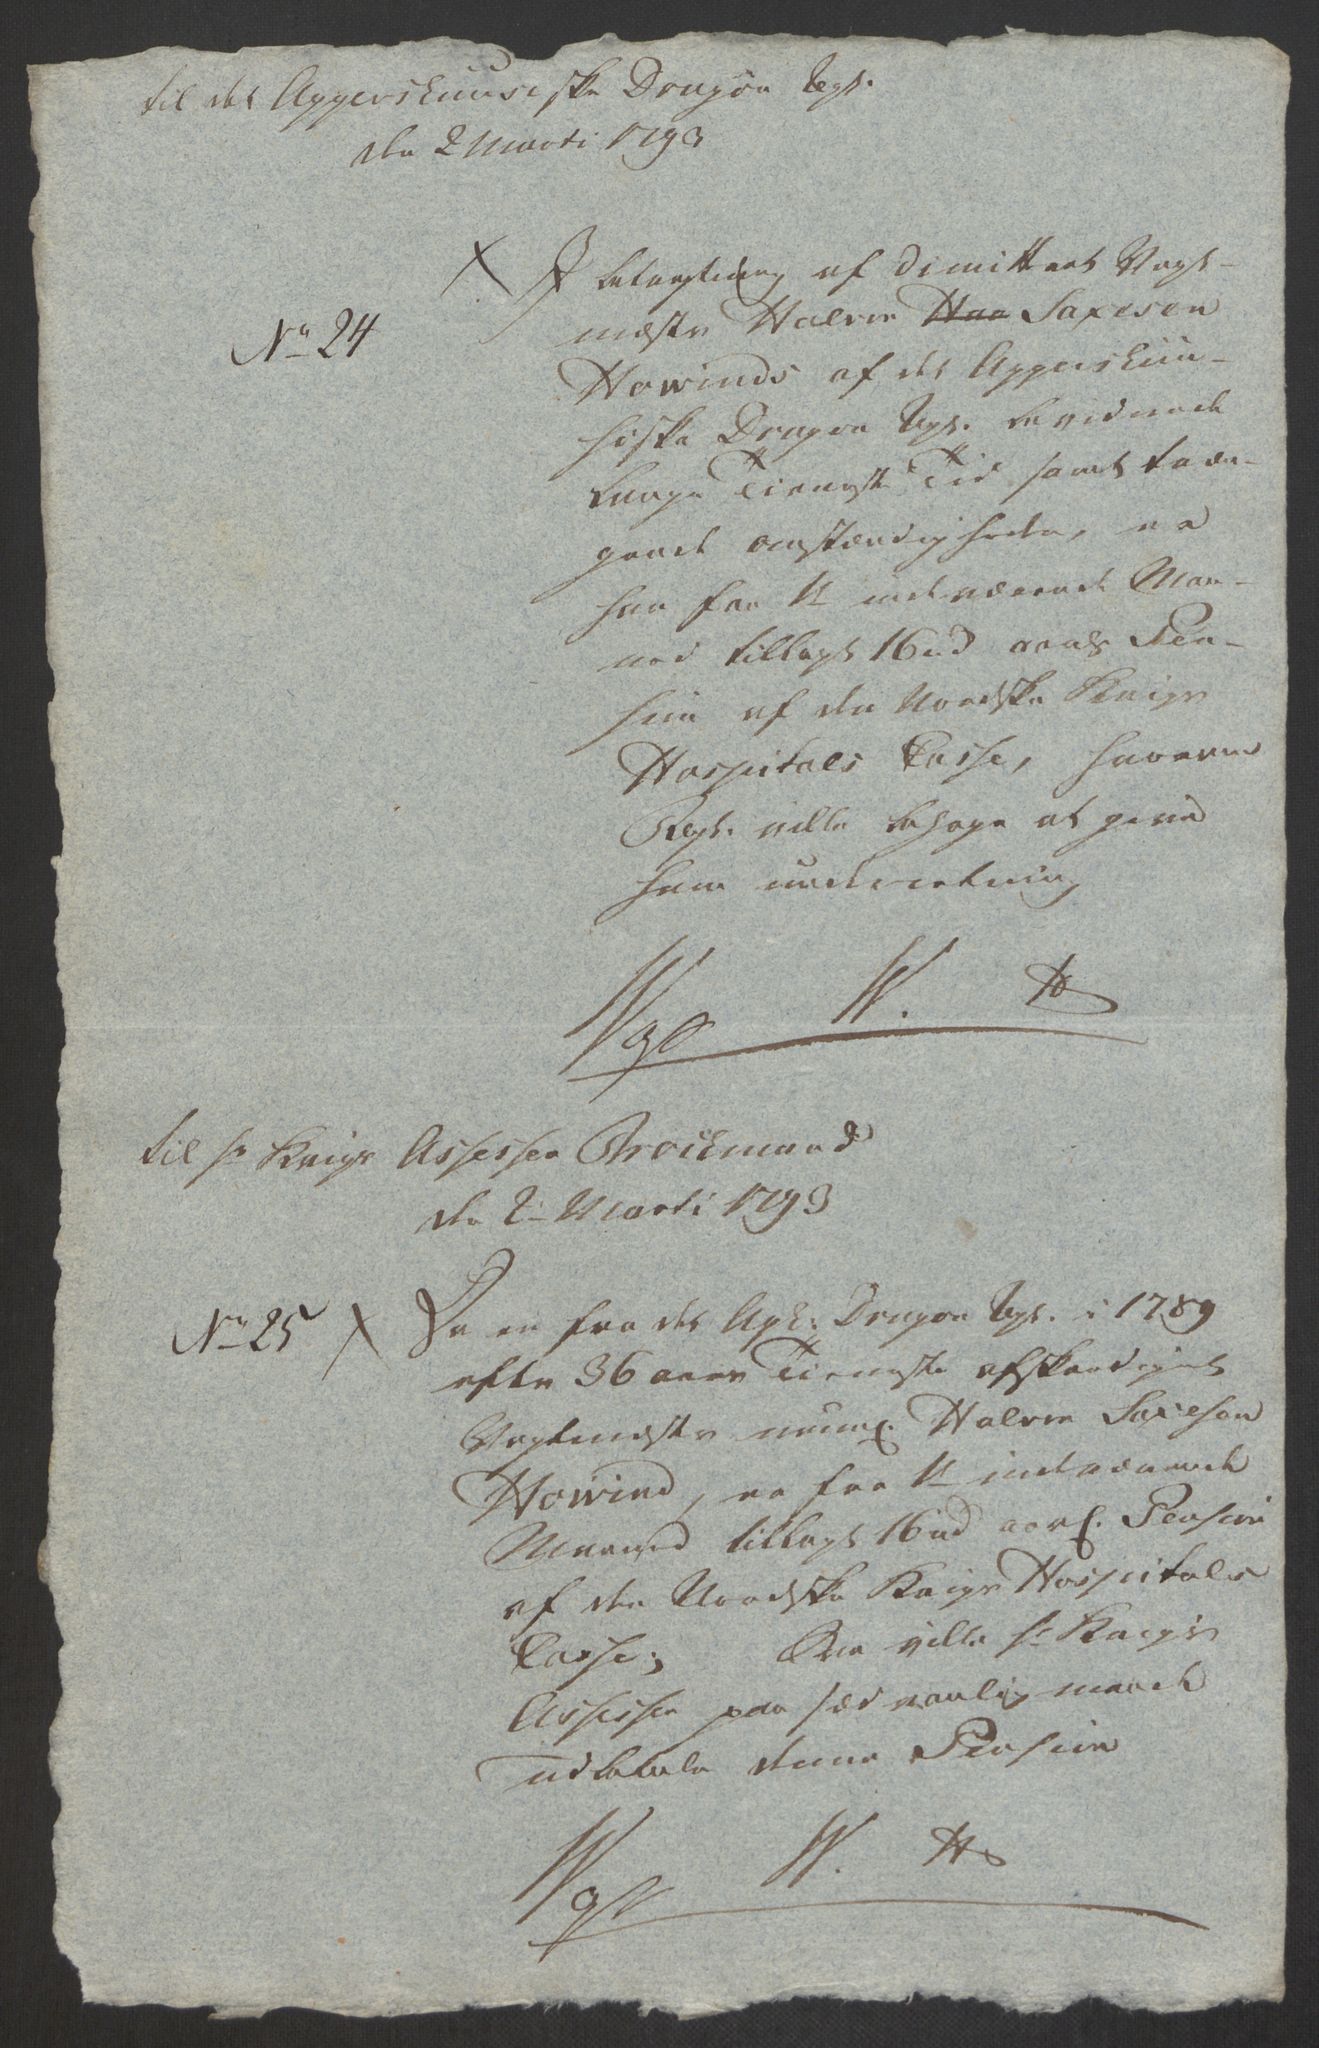 til det Aggershuusiske Dragon Regt.
den 2 Marti 1793
No 24
I betragtning af dimitteret Vagt-
mester Halvor Haa Saxesen
Howinds af det Aggershuu-
siske Dragon Regt. bevidnede
lange Tieneste Tid samt træn-
gende omstændigheder, er
han fra 1te indeværende Maa-
ned tillagt 16 rd aarl Pen-
sion af den Nordske Krigs
Hospitals Casse, hvorom
Regt. ville behage at give
ham underretning
W. H
til Hr Krigs Assessor Brockmand
den 2 Marti 1793
No 25
Da en fra det Agh: Dragon Regt. i 1789
efter 36 aars Tieneste afskeediget
Vagtmester navnl. Halvor Saxesen
Howind, er fra 1te indeværende
Maaned tillagt 16 rd aarl. Pension
af den Nordske Krigs Hospitals
Casse; saa ville Hr Krigs
Assessor paa sædvanlig maade
udbetale denne Pension
W. H